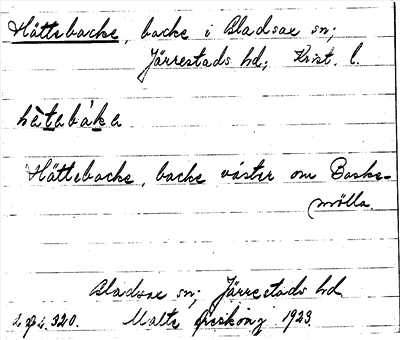 Hättebacke, backe i Bladsae sn;
Järrestads hd; Krist. l.
hàtabáka
Hättebacke, backe väster om Baske-
mölla.
Bladsae sn; Järrestads hd
Malte 1923.